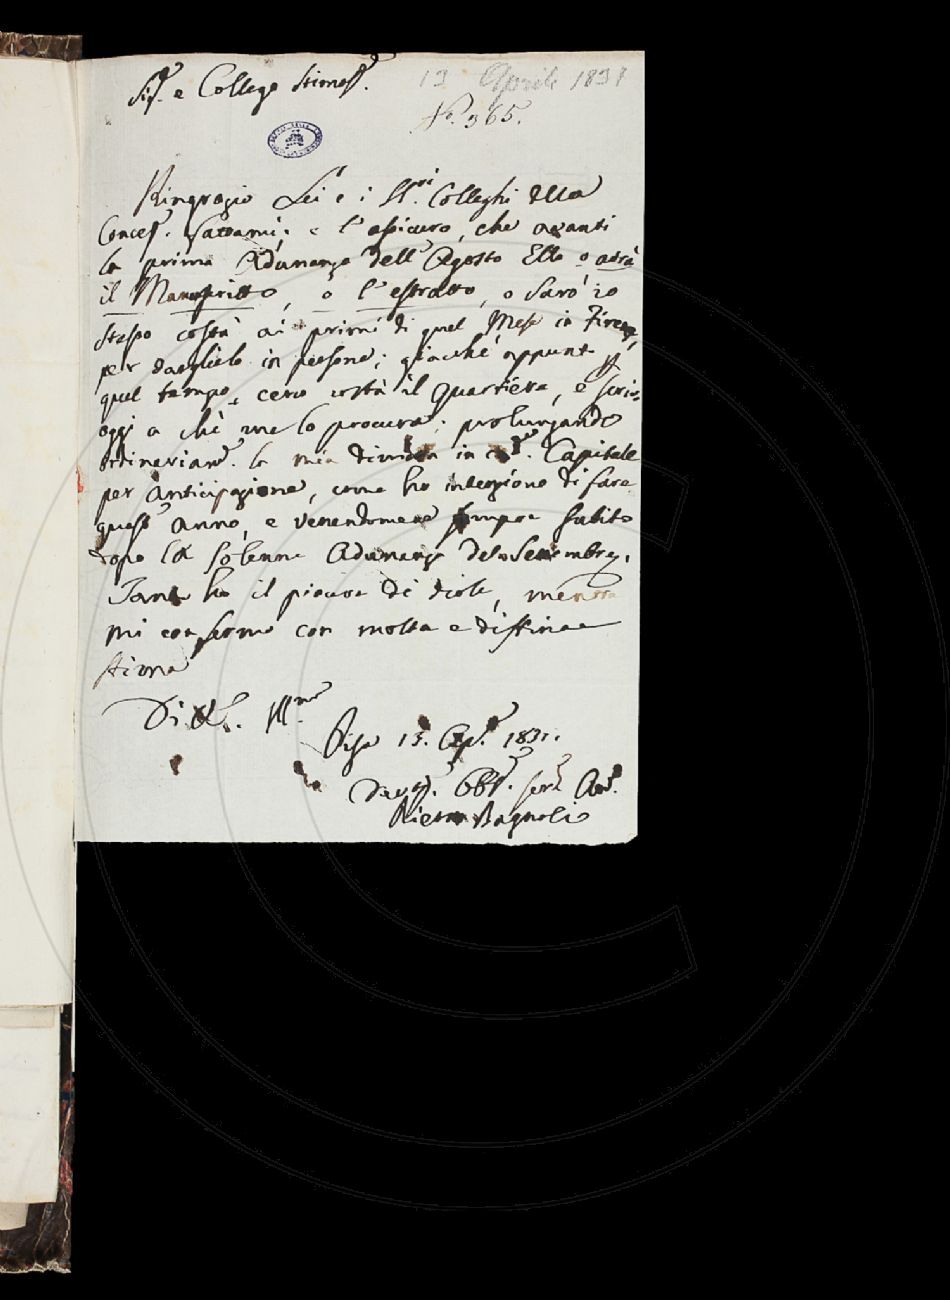 Sig.r e Collega Stimatiss.
13 Aprile 1831
N.o 365.
Ringrazio Lei e i SS.ri Colleghi della
Concess. fattami: e l'assicuro, che avanti
la prima Adunanza dell'Agosto Ella o avrà
il Manuscritto, o l'estratto, o sarò io
stesso costà ai primi di quel Mese in Firenze,
per darglielo in persona; giacchè appunto p.
quel tempo, cerco costà il Quartiere, e scrivo
oggi a chi me lo procura; prolungando
ordinariam. la mia dimora in cod. Capitale
per anticipazione, come ho intenzione di fare
quest'anno, e venendomene sempre subito
dopo la solenne Adunanza del Settembre.
Tanto ho il piacere di dirle, mentre
mi confermo con molta e distinta
stima
Di V.S. Ill.ma
Pisa 13. Ap. 1831.
Devot. Obb. Ser. Am.
Pietro Bagnoli